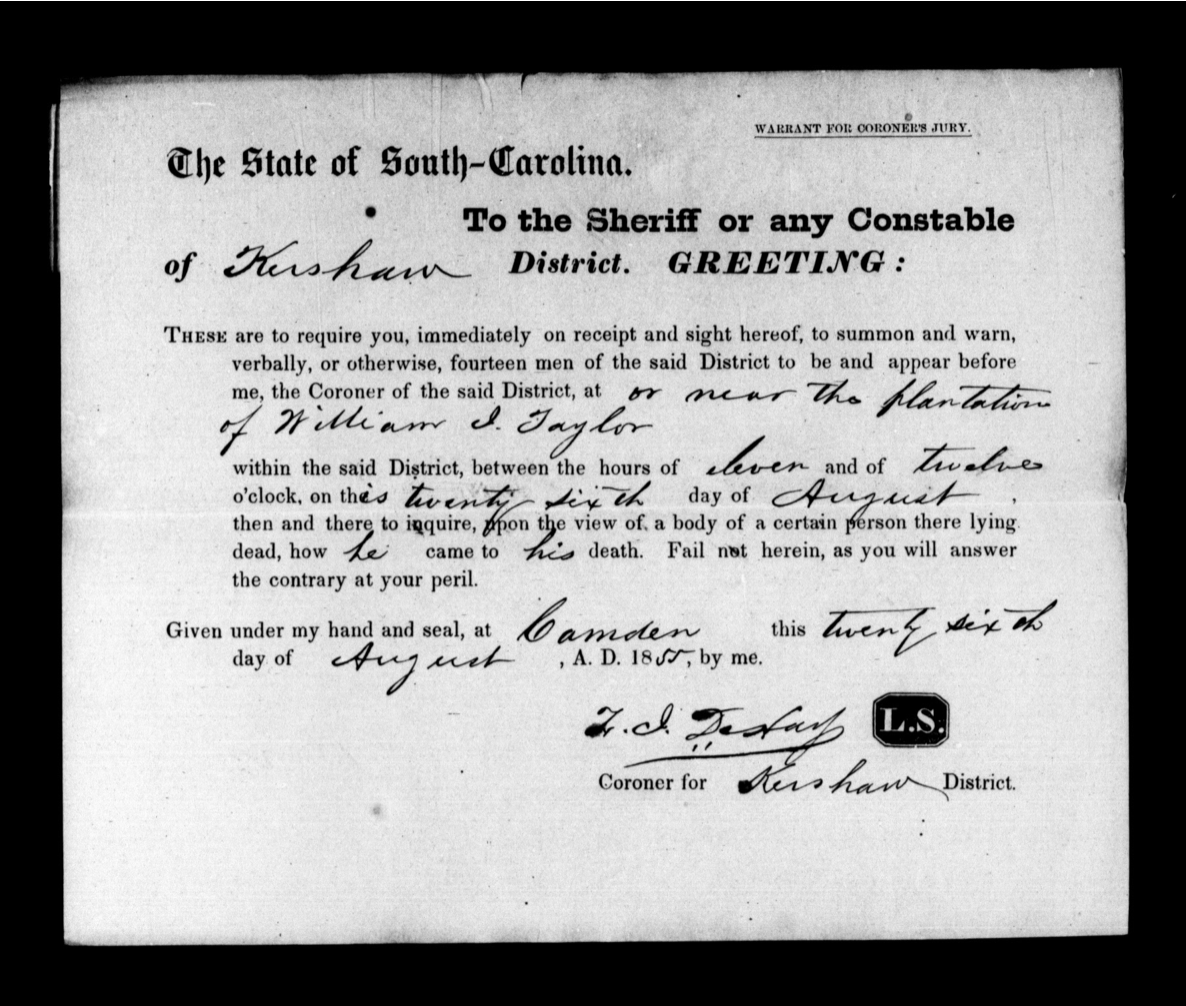 WARRANT FOR CORONER'S JURY.
The State of South-Carolina.
To the Sheriff or any Constable
of Kershaw District. GREETING:
THESE are to require you, immediately on receipt and sight hereof, to summon and warn,
verbally, or otherwise, fourteen men of the said District to be and appear before
me, the Coroner of the said District, at or near the plantation
of William J. Taylor
within the said District, between the hours of eleven and of twelve
o'clock, on this twenty sixth day of August,
then and there to inquire, upon the view of a body of a certain person there lying
dead, how he came to his death. Fail not herein, as you will answer
the contrary at your peril.
Given under my hand and seal, at Camden this twenty sixth
day of August, A. D. 1855, by me.
J. DeHay L.S.
Coroner for Kershaw District.